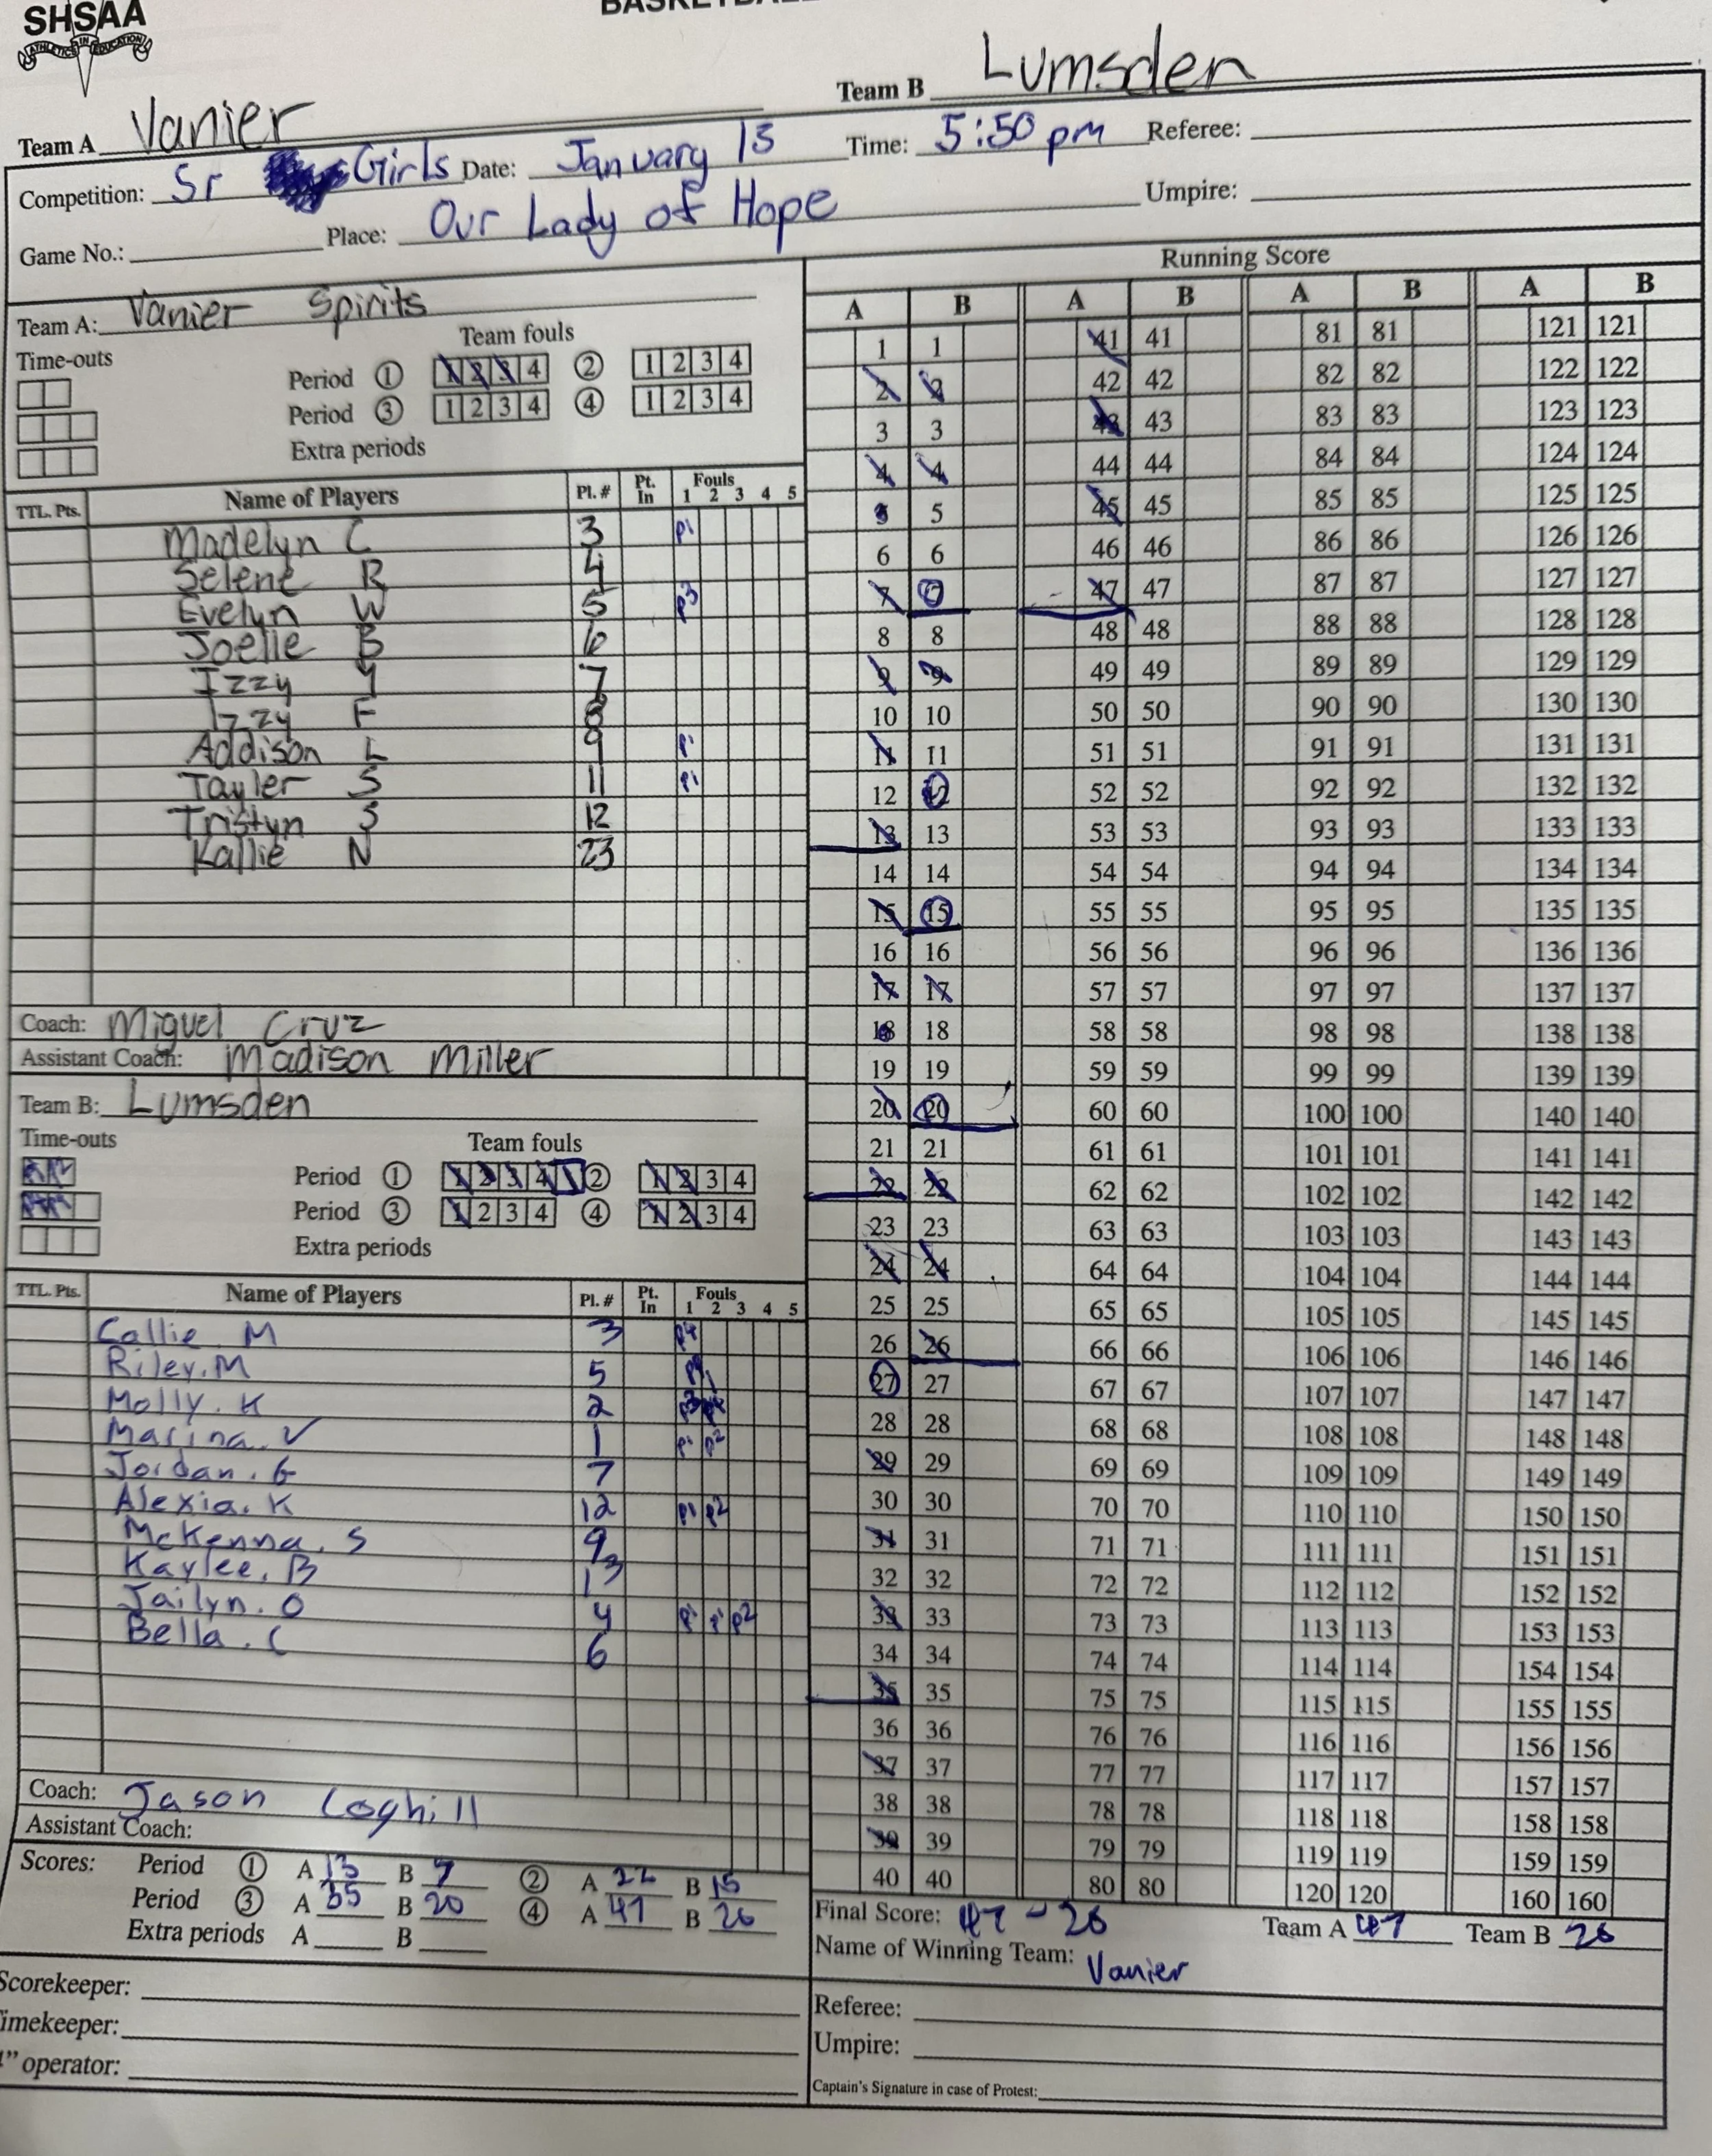 SHSAA
ATHLETICS IN EDUCATION
Team A Vanier Team B Lumsden
Competition: Sr Girls Date: January 13 Time: 5:50 pm Referee:
Game No.: Place: Our Lady of Hope Umpire:
Running Score
Team A: Vanier Spirits
Time-outs Team fouls
Period 1 1 2 3 4 2 1 2 3 4
Period 3 1 2 3 4 4 1 2 3 4
Extra periods
TTL. Pts. Name of Players Pl. # Pt. In Fouls 1 2 3 4 5
Madelyn C 3 P1
Selene R 4
Evelyn W 5 P3
Joelle B 6
Izzy Y 7
Izzy F 8
Addison L 9 P1
Tayler S 11 P1
Tristyn S 12
Kallie N 23
Coach: Miguel Cruz
Assistant Coach: Madison Miller
Team B: Lumsden
Time-outs Team fouls
Period 1 1 2 3 4 2 1 2 3 4
Period 3 1 2 3 4 4 1 2 3 4
Extra periods
TTL. Pts. Name of Players Pl. # Pt. In Fouls 1 2 3 4 5
Callie M 3 P4
Riley.M 5
Molly.K 2
Marina.V 1 P1 P2
Jordan.G 7
Alexia.K 12 P1 P2
McKenna.S 9
Kaylee.B 13
Jailyn.O 4 P1 P1 P2
Bella.C 6
Coach: Jason Coghill
Assistant Coach:
Scores: Period 1 A 13 B 7 2 A 22 B 15
Period 3 A 35 B 20 4 A 47 B 26
Extra periods A B
Scorekeeper:
imekeeper:
" operator:
A B A B A B A B
1 1 41 41 81 81 121 121
2 2 42 42 82 82 122 122
3 3 43 43 83 83 123 123
4 4 44 44 84 84 124 124
5 5 45 45 85 85 125 125
6 6 46 46 86 86 126 126
7 7 47 47 87 87 127 127
8 8 48 48 88 88 128 128
9 9 49 49 89 89 129 129
10 10 50 50 90 90 130 130
11 11 51 51 91 91 131 131
12 12 52 52 92 92 132 132
13 13 53 53 93 93 133 133
14 14 54 54 94 94 134 134
15 15 55 55 95 95 135 135
16 16 56 56 96 96 136 136
17 17 57 57 97 97 137 137
18 18 58 58 98 98 138 138
19 19 59 59 99 99 139 139
20 20 60 60 100 100 140 140
21 21 61 61 101 101 141 141
22 22 62 62 102 102 142 142
23 23 63 63 103 103 143 143
24 24 64 64 104 104 144 144
25 25 65 65 105 105 145 145
26 26 66 66 106 106 146 146
27 27 67 67 107 107 147 147
28 28 68 68 108 108 148 148
29 29 69 69 109 109 149 149
30 30 70 70 110 110 150 150
31 31 71 71 111 111 151 151
32 32 72 72 112 112 152 152
33 33 73 73 113 113 153 153
34 34 74 74 114 114 154 154
35 35 75 75 115 115 155 155
36 36 76 76 116 116 156 156
37 37 77 77 117 117 157 157
38 38 78 78 118 118 158 158
39 39 79 79 119 119 159 159
40 40 80 80 120 120 160 160
Final Score: 47 - 26 Team A 47 Team B 26
Name of Winning Team: Vanier
Referee:
Umpire:
Captain's Signature in case of Protest: